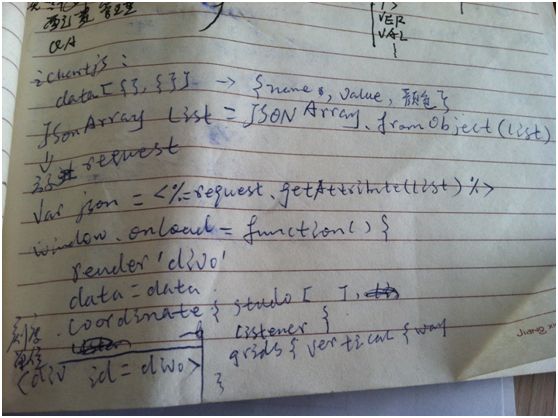 VER
VAL
}
QA
ichartjs:
data[{},{}] → {name, value, 颜色}
JSONArray list = JSONArray.fromObject(list)
request
var json = <%=request.getAttribute(list)%>
window.onload = function() {
render 'div0'
data = data
coordinate {
listener }
grids { vertical { way
刻度
<div id = div0>
}